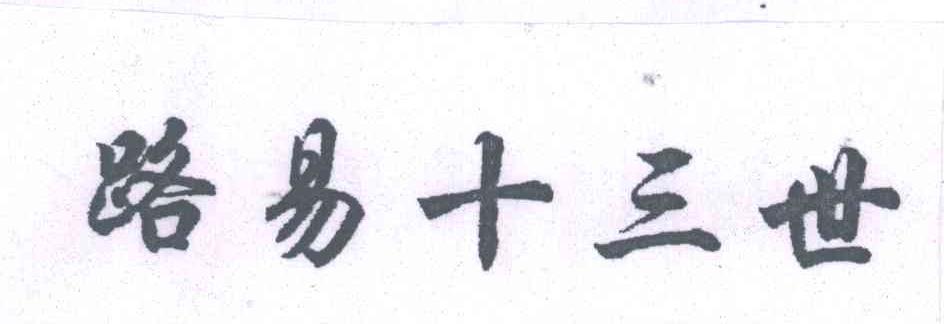 路易十三世